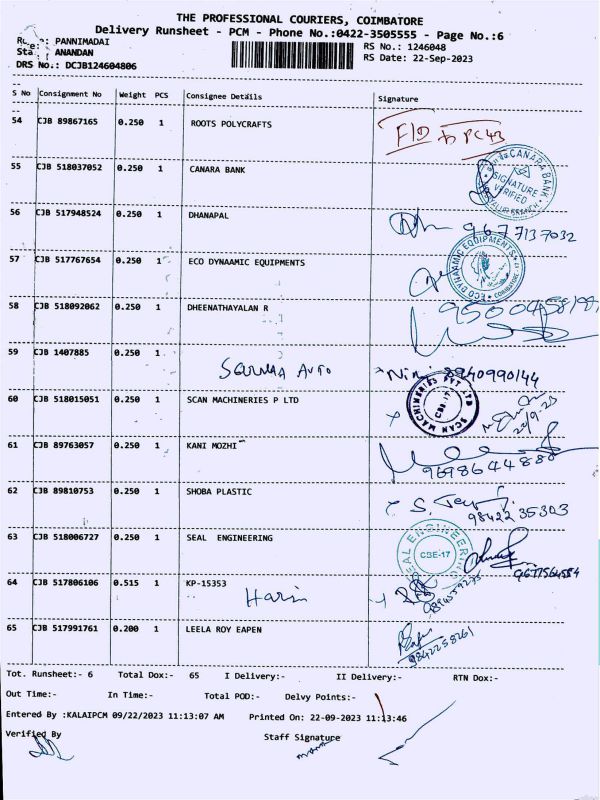 THE PROFESSIONAL COURIERS, COIMBATORE
Delivery Runsheet - PCM - Phone No.:0422-3505555 - Page No.:6
PANNIMADAI
RS No.: 1246048
ANANDAN
RS Date: 22-Sep-2023
DRS No.: DCJB124604806
S No Consignment No Weight PCS Consignee Details Signature
54 CJB 89867165 0.250 1 ROOTS POLYCRAFTS
55 CJB 518037052 0.250 1 CANARA BANK
CANARA BANK
SIGNATURE VERIFIED
56 CJB 517948524 0.250 1 DHANAPAL
9677137032
57 CJB 517767654 0.250 1 ECO DYNAAMIC EQUIPMENTS
ECO DYNAAMIC EQUIPMENTS COIMBATORE
58 CJB 518092062 0.250 1 DHEENATHAYALAN R
59 CJB 1407885 0.250 1
AUTO 8940990144
60 CJB 518015051 0.250 1 SCAN MACHINERIES P LTD
SCAN MACHINERIES PVT LTD CBE-17
61 CJB 89763057 0.250 1 KANI MOZHI
9698644888
62 CJB 89810753 0.250 1 SHOBA PLASTIC
98422 35303
63 CJB 518006727 0.250 1 SEAL ENGINEERING
SEAL ENGINEERING CBE-17
64 CJB 517806106 0.515 1 KP-15353
65 CJB 517991761 0.200 1 LEELA ROY EAPEN
9842258261
Tot. Runsheet:- 6 Total Dox:- 65 I Delivery:- II Delivery:- RTN Dox:-
Out Time:- In Time:- Total POD:- Delvy Points:-
Entered By :KALAIPCM 09/22/2023 11:13:07 AM Printed On: 22-09-2023 11:13:46
Verified By Staff Signature